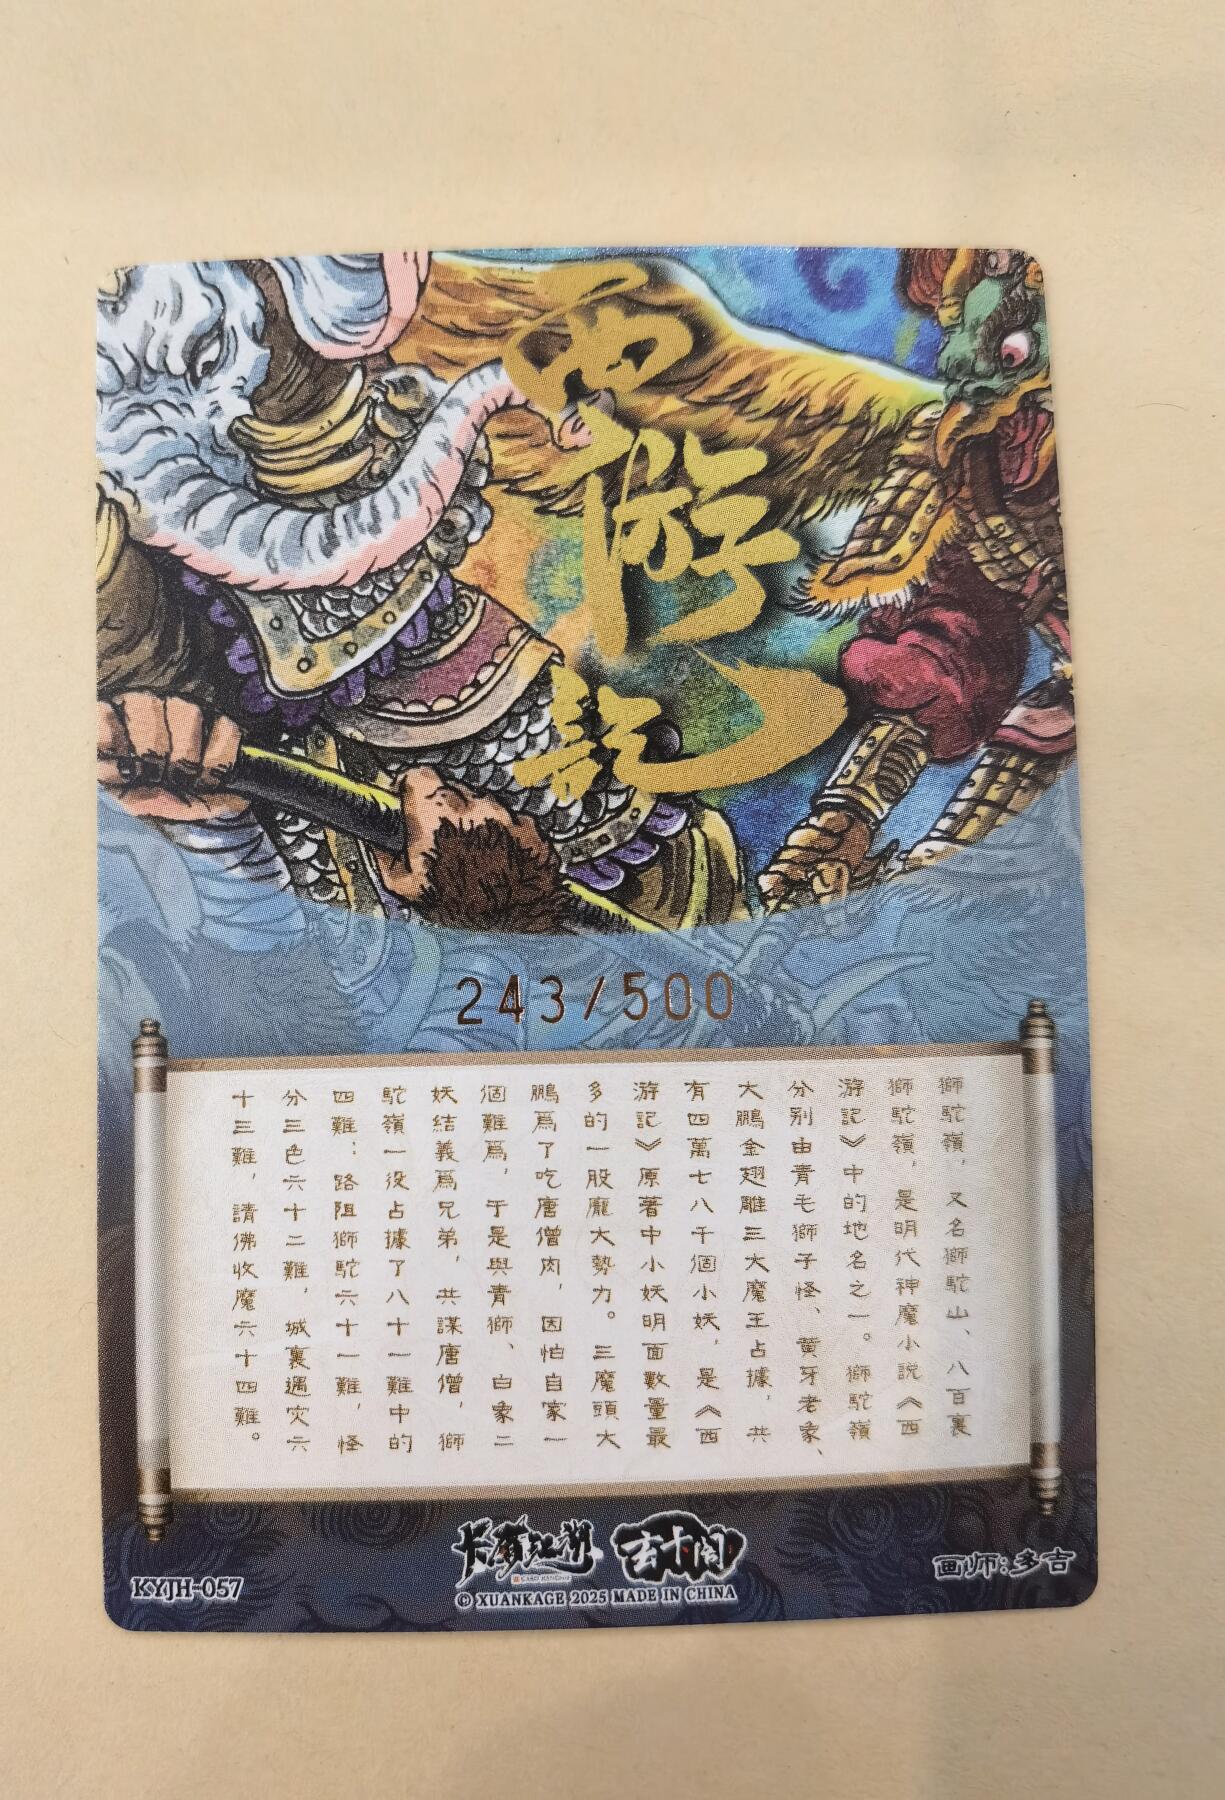 西游記
243/500
獅駝嶺，又名獅駝山、八百裏
獅駝嶺，是明代神魔小説《西
游記》中的地名之一。獅駝嶺
分别由青毛獅子怪、黄牙老象、
大鵬金翅雕三大魔王占據，共
有四萬七八千個小妖，是《西
游記》原著中小妖明面數量最
多的一股龐大勢力。三魔頭大
鵬爲了吃唐僧肉，因怕自家一
個難爲，于是與青獅、白象二
妖結義爲兄弟，共謀唐僧，獅
駝嶺一役占據了八十一難中的
四難：路阻獅駝六十一難，怪
分三色六十二難，城裏遇灾六
十三難，請佛收魔六十四難。
KYJH-057
卡有江湖 玄卡阁
© XUANKAGE 2025 MADE IN CHINA
画师:多吉